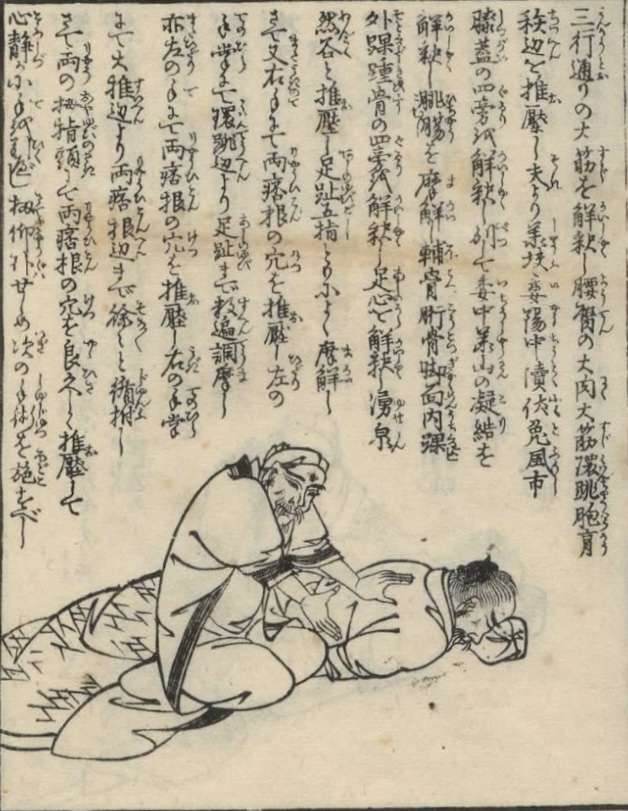 三行通りの大筋を解釈し腰臀の大肉大筋環跳胞肓
秩辺を推壓し夫より承扶委陽中瀆伏兎風市
膝蓋の四旁を解釈し別て委中承山の凝結を
解釈し跳腸を摩解輔骨䯒骨脚面内踝
外踝踵骨の四旁を解釈し足心を解釈し湧泉
然谷と推壓し足趾五指とりによく摩解し
さて又右手にて両痞根の穴を推壓し左の
手掌にて環跳辺より足趾まで数遍調摩し
亦左の手にて両痞根の穴を推壓し右の手掌
にて大椎辺より両痞根辺まで徐々と循拊し
さて両の拇指頭にて両痞根の穴を良久しく推壓して
心静かに手を し仰卧せしめ次の手術を施すべし